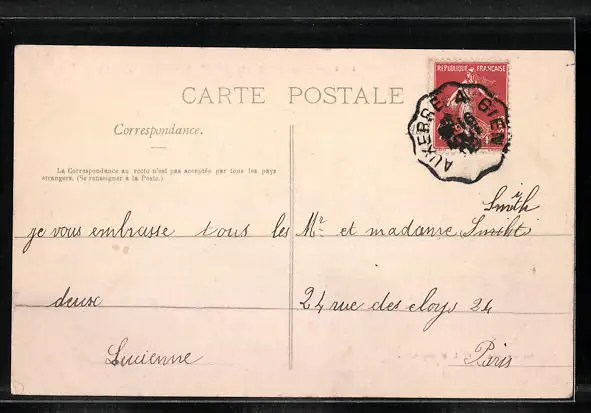 CARTE POSTALE
REPUBLIQUE FRANÇAISE
AUXERRE A GIEN
16
Correspondance.
La Correspondance au recto n'est pas acceptée par tous les pays
étrangers. (Se renseigner à la Poste.)
Smith
je vous embrasse tous les
deux
Lucienne
Mr et madame
24 rue des eloys 24
Paris